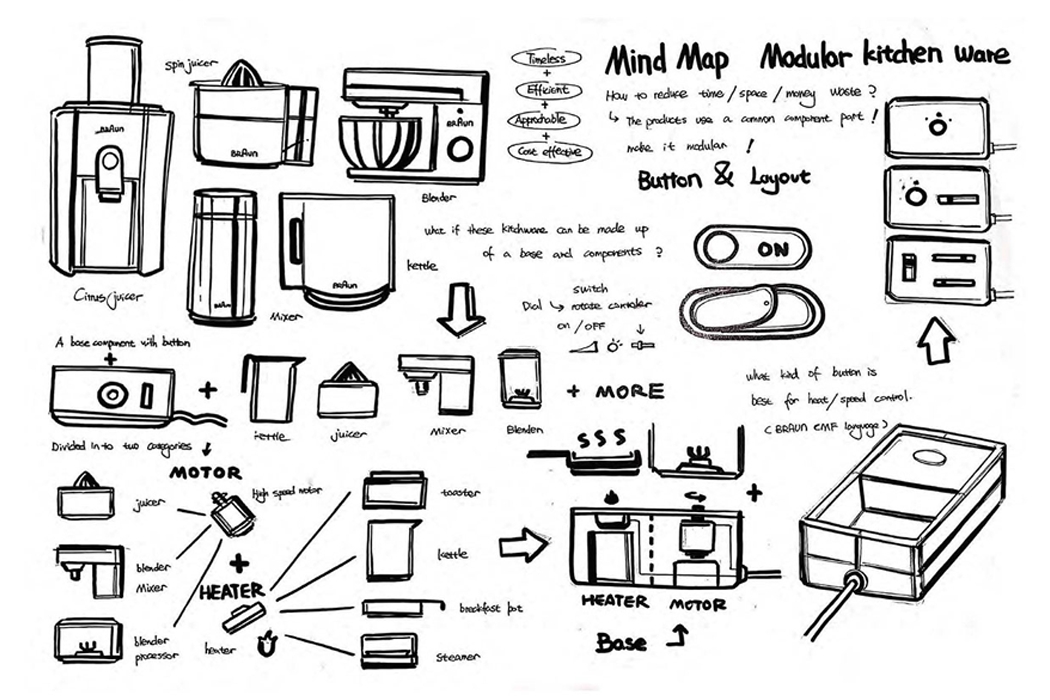 Mind Map Modular kitchen ware
How to reduce time/space/money waste?
↳ The products use a common component part!
make it modular!
Button & Layout
Timeless
+
Efficient
+
Approchable
+
Cost effective
spin juicer
BRAUN
BRAUN
BRAUN
Blender
Citrus/juicer
BRAUN
Mixer
BRAUN
kettle
what if these kitchware can be made up
of a base and components?
switch
Dial ↳ rotate controler
on/OFF
ON
what kind of button is
best for heat/speed control.
(BRAUN CMF language)
A base component with button
+
+
kettle
juicer
Mixer
Blender
+ MORE
Divided in to two categories
MOTOR
High speed motor
juicer
blender
Mixer
blender
processor
+
HEATER
heater
toaster
kettle
breakfast pot
steamer
SSS
+
HEATER MOTOR
Base